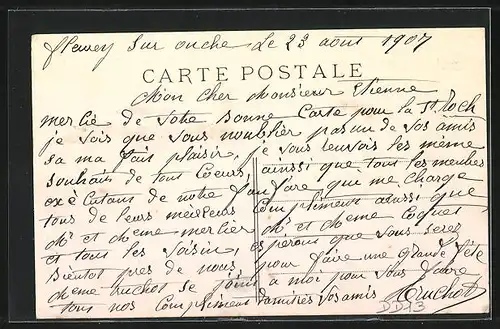 fleurey sur ouche Le 23 aout 1907
CARTE POSTALE
Mon cher Monsieur Etienne
mercie de votre Bonne Carte pour la St Roch
je vois que vous noublier pas un de vos amis
sa ma fait plaisir, je vous envois les même
souhais de tout Coeur, ainsi que tout les membres
exécutans de notre fanfare, qui me charge
tous de leurs meilleurs Compliment aussi que
Mr et meme mercier Mr et meme Coquet
et tous les voisin, esperont que vous serez
Bientot pres de nous pour faire une Grande fête
meme truchot se joint a moi pour vous faire
tous nos Compliment damitiés vos amis Truchot
DD13